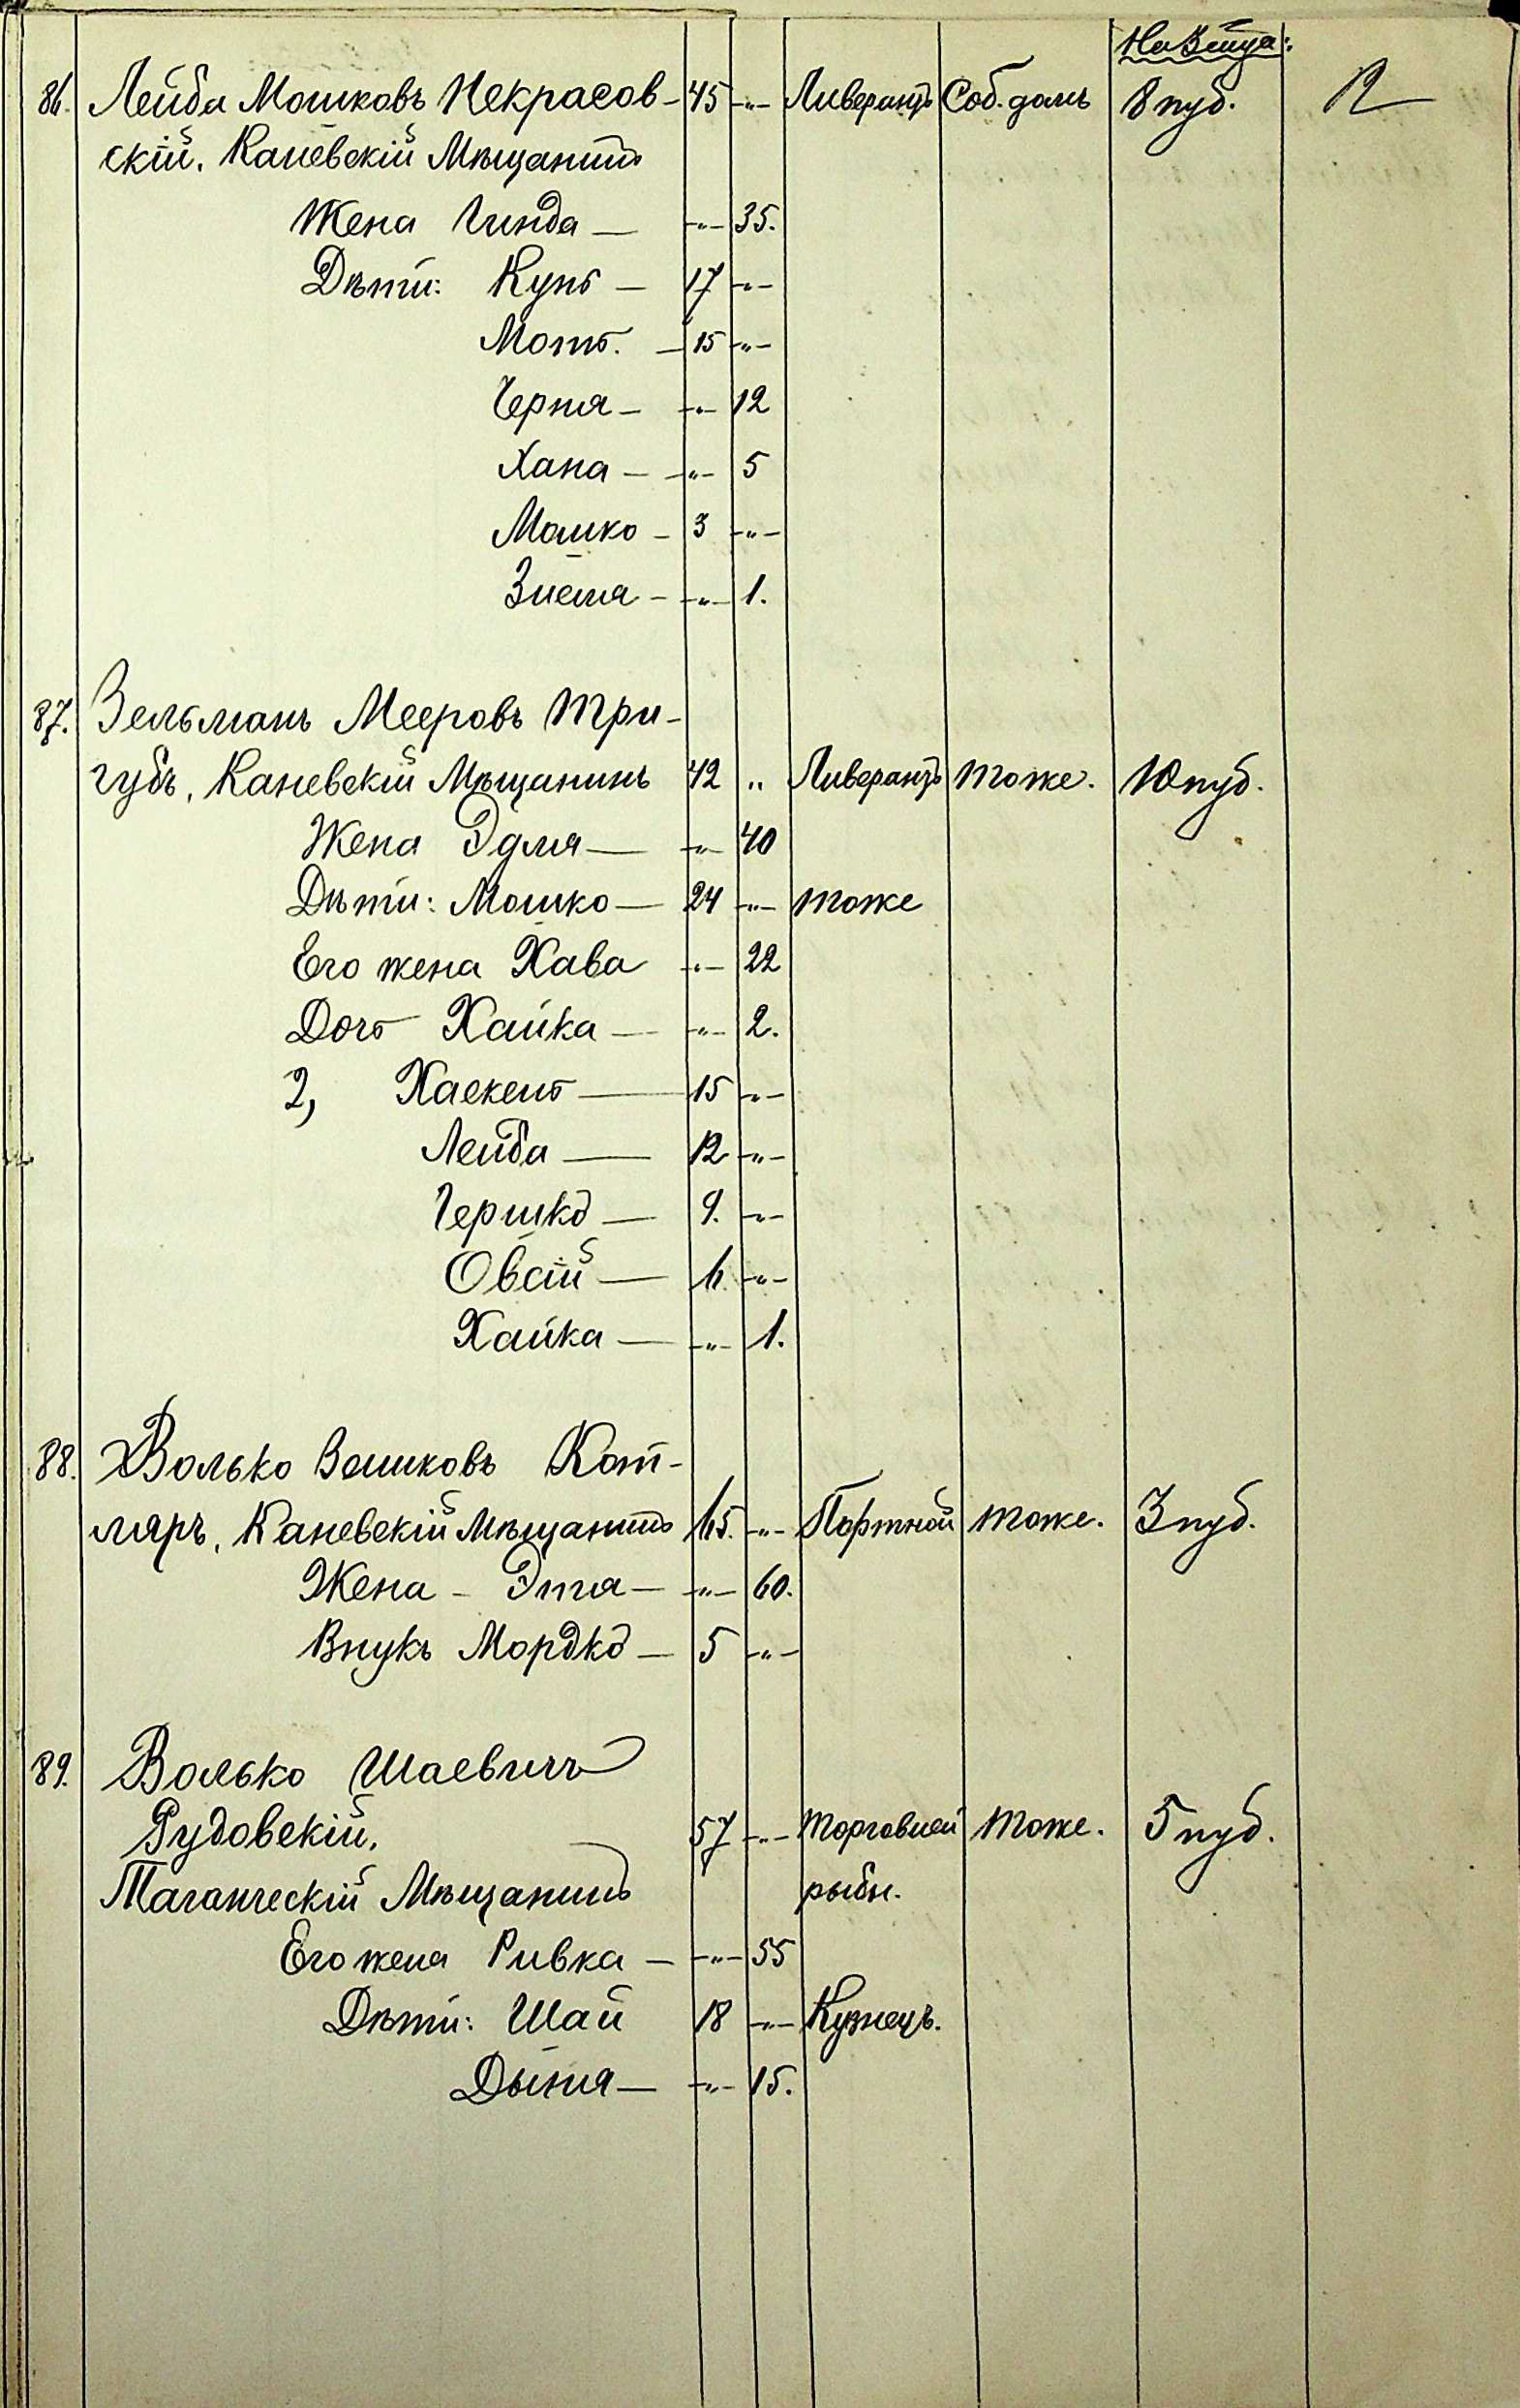 86. Лейба Мошковъ Некрасов- 45 -"- Ливерантъ Соб. домъ 8 пуд.
скій. Каневскій Мѣщанинъ
Жена Гинда — -"- 35.
Дѣти: Кунъ — 17 -"-
Мотъ. — 15 -"-
Черня — -"- 12
Хана — -"- 5
Мошко — 3 -"-
-"- 1.
87. Зельманъ Мееровъ Три-
губъ, Каневскій Мѣщанинъ 42 " Ливерантъ тоже. 10 пуд.
Жена Эдля — -"- 40
Дѣти: Мошко — 24 -"- тоже
Его жена Хава -"- 22
Дочь Хайка — -"- 2.
2, Хаскель — 15 -"-
Лейба — 12 -"-
Гершко — 9. -"-
Овсій — 6 -"-
Хайка — -"- 1.
88. Волько Зеликовъ Кот-
ляръ, Каневскій Мѣщанинъ 65. -"- Портной тоже. 3 пуд.
Жена - Этя — -"- 60.
Внукъ Мордко — 5 -"-
89. Волько Шаевичъ
Рудовскій, 57 -"- Торговлей тоже. 5 пуд.
Таганческій Мѣщанинъ рыбы.
Его жена Ривка — -"- 55
Дѣти: Шай 18 -"- Кузнецъ.
Дыня — -"- 15.